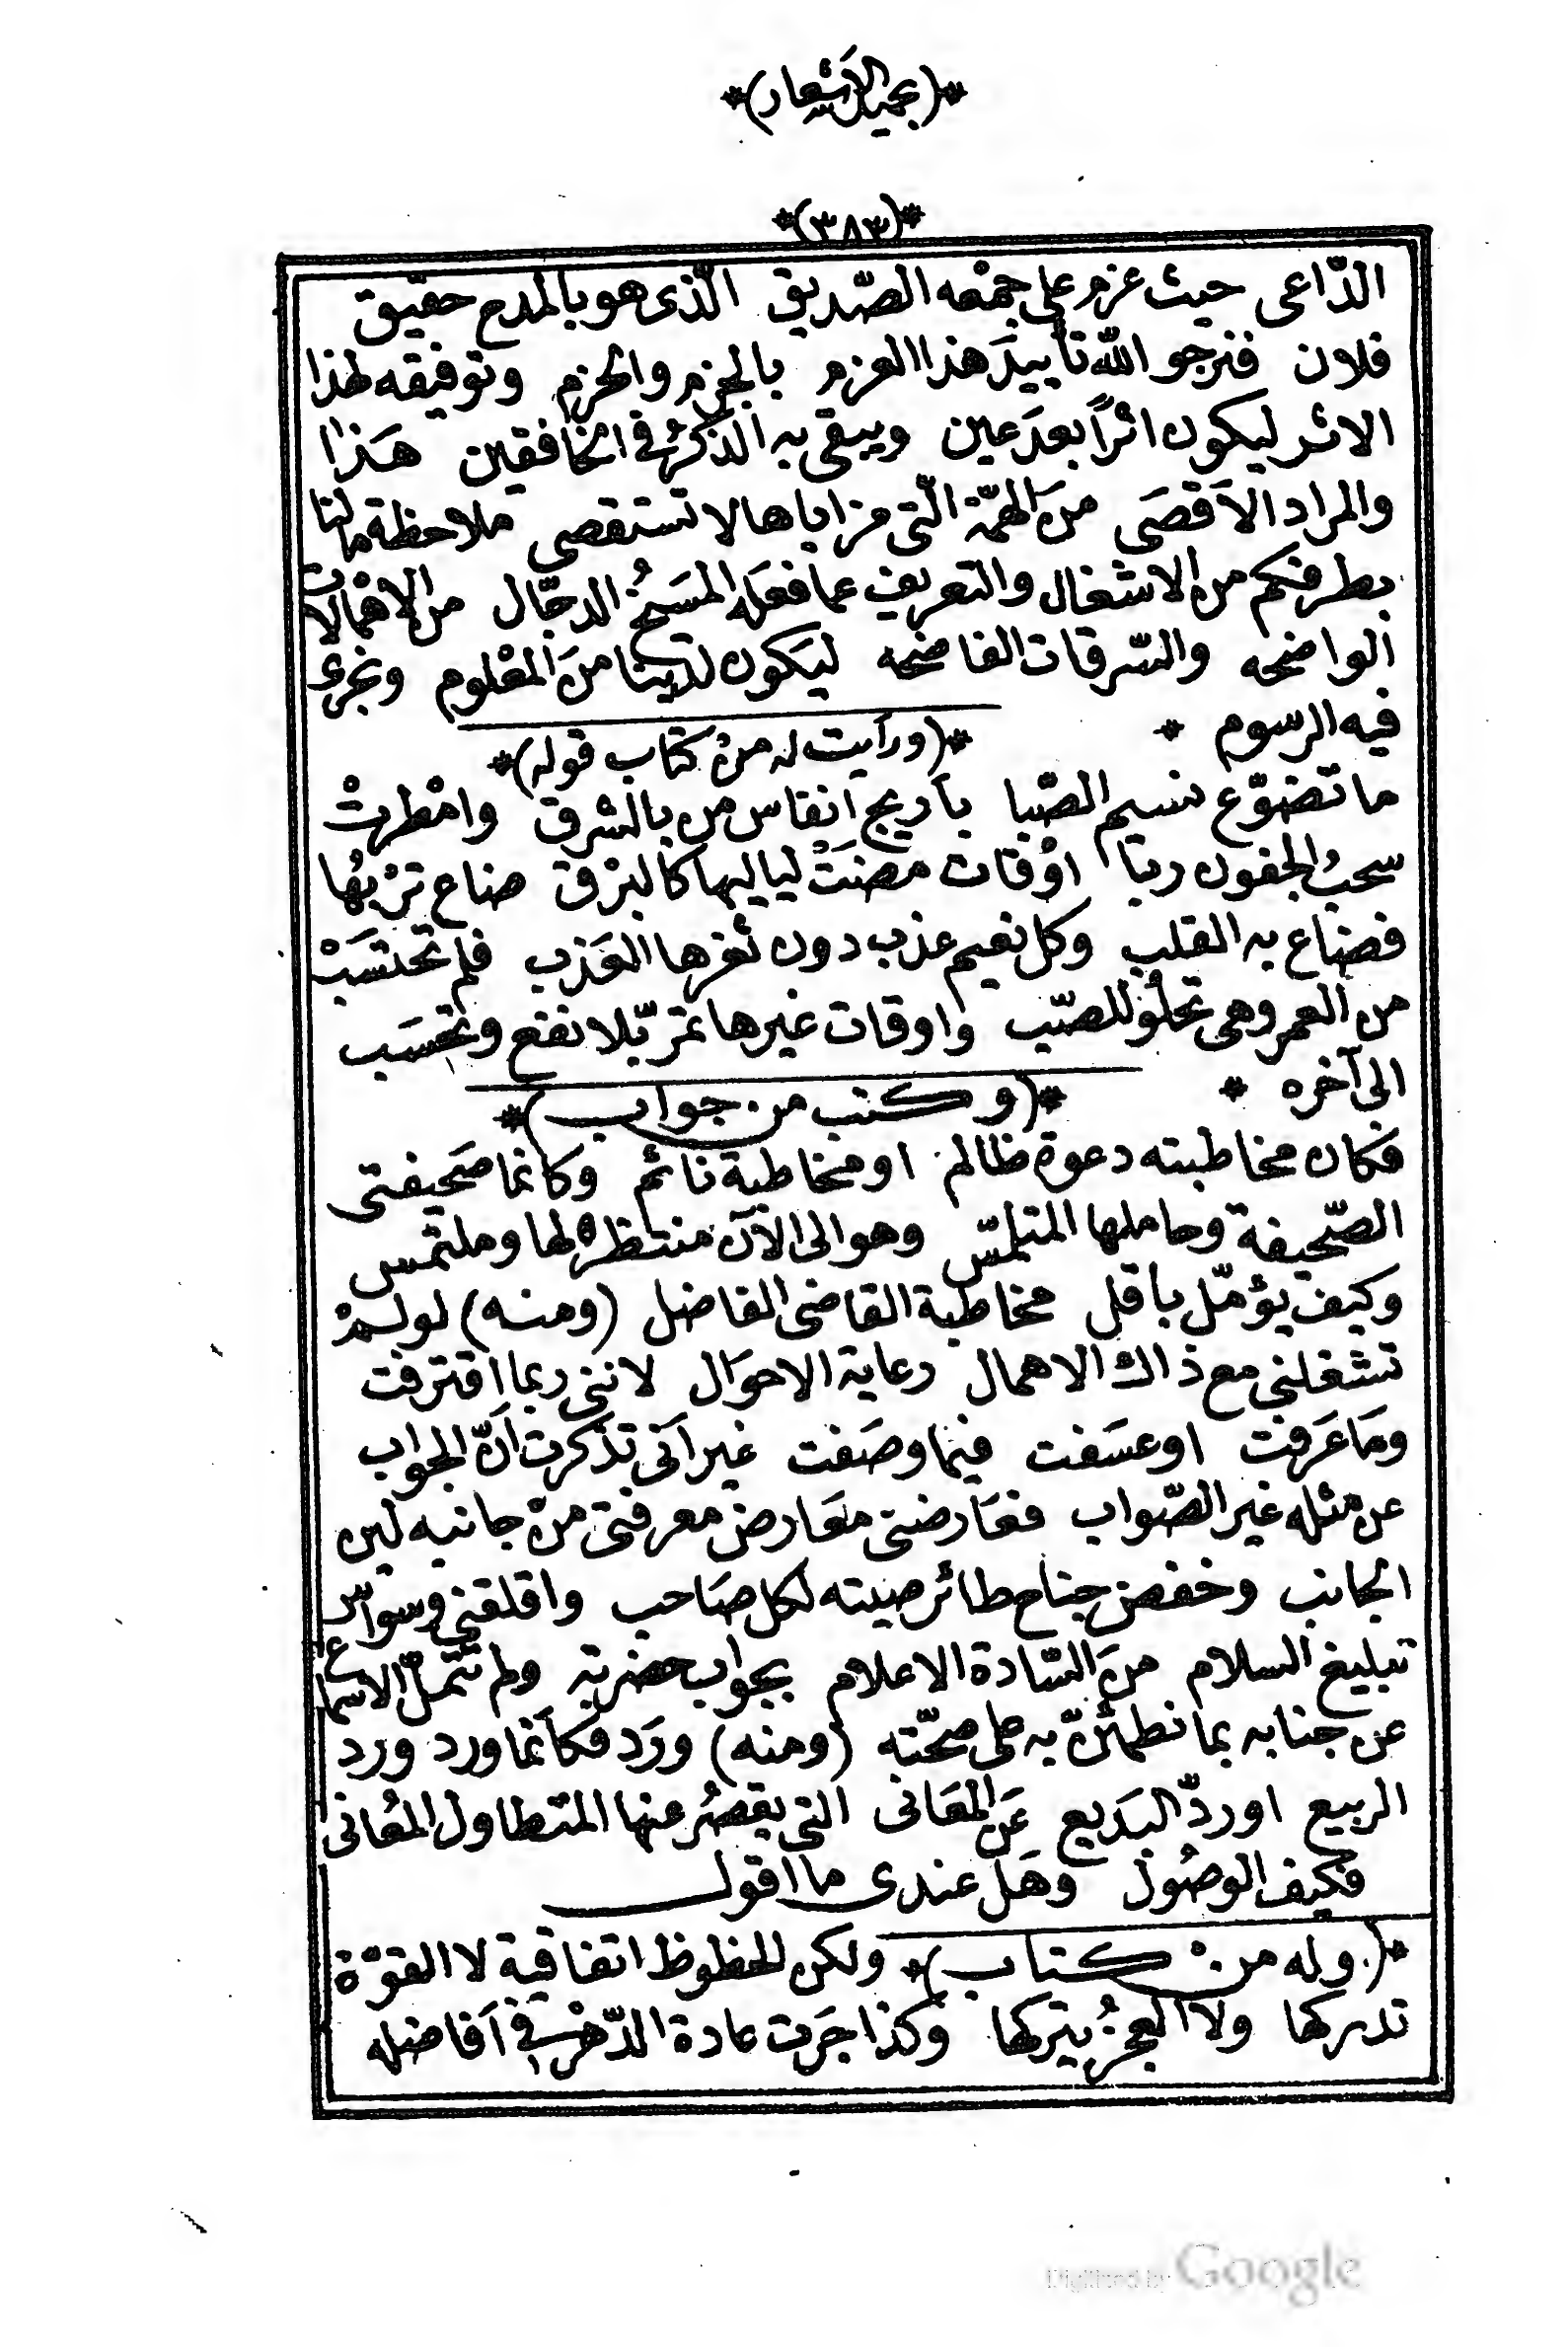 *(بجميل الأشعار)*
*(٣٨٣)*
الدّاعى حيث عزم على جمْعه الصّديق الّذى هو بالمدح حقيق
فلان فنرجو اللّه تأييدَ هذا العزم بالجزم والحزم وتوفيقه لهذا
الاثر ليكون اثراً بعدَ عين ويبقى به الذكرُ فى الخافقين هَذا
والمراد الاَقصَى منَ الهمّة الّتى مزاياها لا تستقصى ملاحظة مالنا
بطرفكم من الاشغال والتعريف عما فعَله المسَيحُ الدجّال من الاهْمالات
الواضحه والسّرقات الفاضحه ليَكون لدينا منَ المعْلوم ونجرى
فيه الرسوم *
*(ورَأيت له منْ كتاب قوله)*
ما تضوّع نسيم الصّبا بأريج اَنفاس من بالشرق وامْطرتْ
سحبُ الجفون ربّا اوْقات مضَتْ لياليها كالبرْق ضاع ترْبُها
فضاع به القلب وكل نعيم عذب دون ثغرها العَذب فلم تحتسَبْ
من العمر وهى تحلُو للصّب واوقات غيرها تمرّ بلا نفع وتحسَب
الى آخره *
*(وكتب من جواب)*
فكان مخاطبته دعوة ظالم او مخاطبة نائم وكانما صَحيفتى
الصّحيفة وحاملها المتلمّس وهو الى الآن منتظرٌ لها وملتمس
وكيف يؤمّل باقل مخاطبة القاضى الفاضل (ومنه) لو لمْ
تشغلنى مع ذاك الاهمال رعاية الاحوَال لاننى ربما اقترفت
ومَا عَرفت او عسَفت فيما وصَفت غير اَنى تذكرت اَنّ الجواب
عن مثله غير الصّواب فعَارضنى معَارض معرفتى منْ جانبه لين
الجانب وخفض جناح طائر صيته لكل صَاحب واقلقنى وسواس
تبليغ السلام منَ السّادة الاعلام بجواب حضرته ولم تمَلّ الاسماع
عن جنابه بما نطمئنّ به على صحّته (ومنه) ورَد فكاَنما ورد ورد
الربيع او ردّ البَديع عَن المعَانى التى يقصُر عنها المتطاول المعُانى
فكيف الوصُول وهَل عندى ما اقول
*(وله من كتاب)* ولكن للحظوظ اتفاقية لا القوّة
تدركها ولا العجزُ يتركها وكذا جَرت عادة الدّهْر فى اَفاضله
Digitized by Google